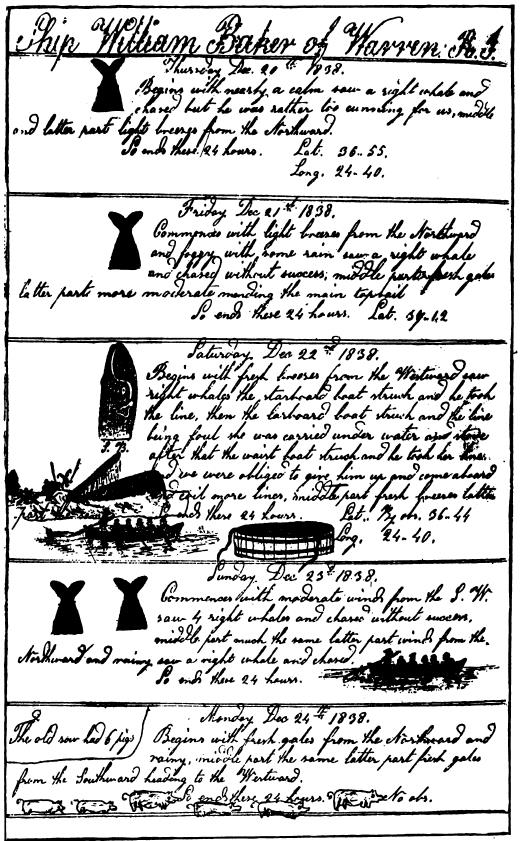 Ship William Baker of Warren. R.I.
Thursday Dec. 20th 1838.
Begins with nearly a calm saw a right whale and
chased but he was rather too cunning for us, middle
and latter part light breezes from the Northward.
So ends these 24 hours. Lat. 36..55.
Long. 24-40.
Friday Dec 21st 1838.
Commences with light breezes from the Northward
and foggy with some rain saw a right whale
and chased without success; middle parts fresh gales
latter parts more moderate mending the main topsail
So ends these 24 hours. Lat. 37-12
Saturday Dec 22nd 1838.
Begins with fresh breezes from the Westward saw
right whales the starboard boat struck and he took
the line, then the larboard boat struck and the line
being foul she was carried under water and stove
after that the waist boat struck and he took her line
and we were obliged to give him up and come aboard
and coil more lines, middle part fresh breezes latter
part
So ends these 24 hours. Lat.. by obs. 36-44
Long. 24-40.
S. B.
Sunday Dec 23d 1838.
Commences with moderate winds from the S. W.
saw 4 right whales and chased without success,
middle part much the same latter part winds from the
Northward and rainy saw a right whale and chased
So ends these 24 hours.
Monday Dec 24th 1838.
The old sow had 6 pigs
Begins with fresh gales from the Northward and
rainy, middle part the same latter part fresh gales
from the Southward heading to the Westward.
So ends these 24 hours. No obs.